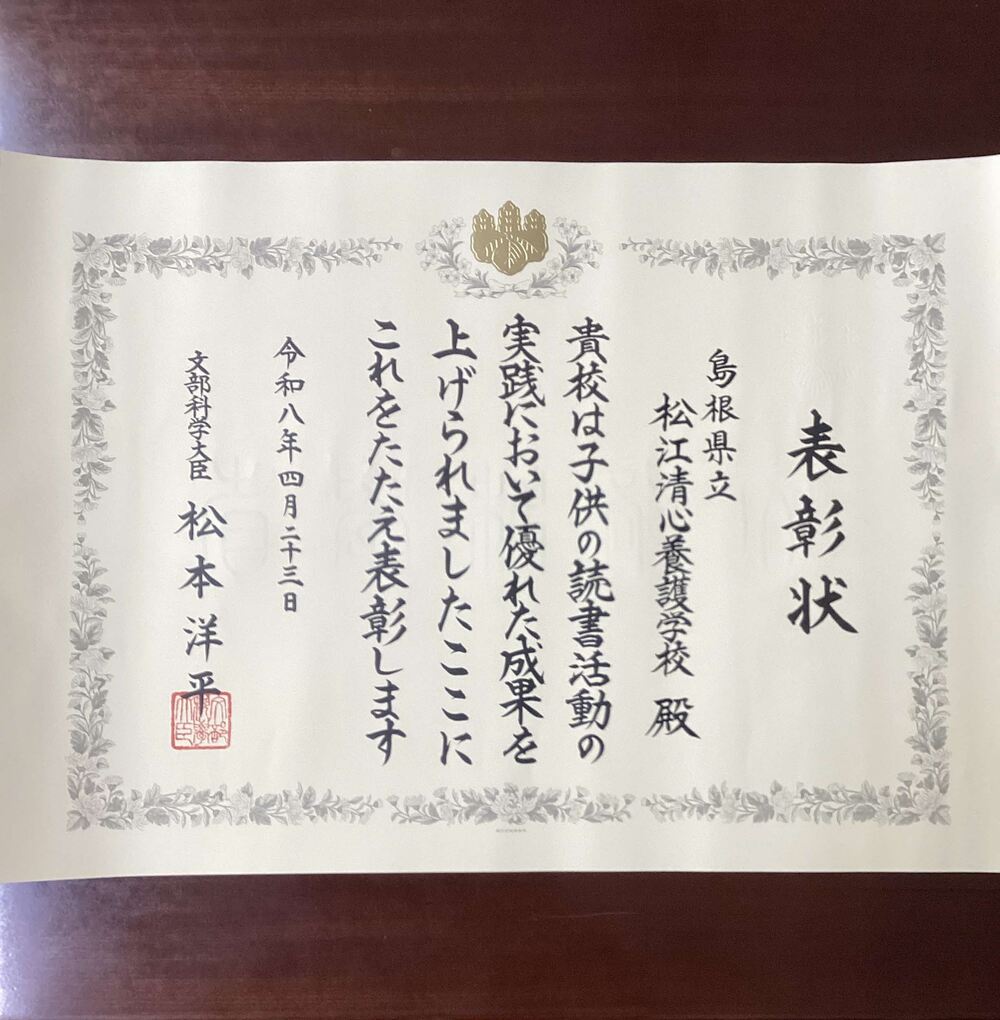 表彰状
島根県立
松江清心養護学校 殿
貴校は子供の読書活動の
実践において優れた成果を
上げられましたここに
これをたたえ表彰します
令和八年四月二十三日
文部科学大臣 松本洋平